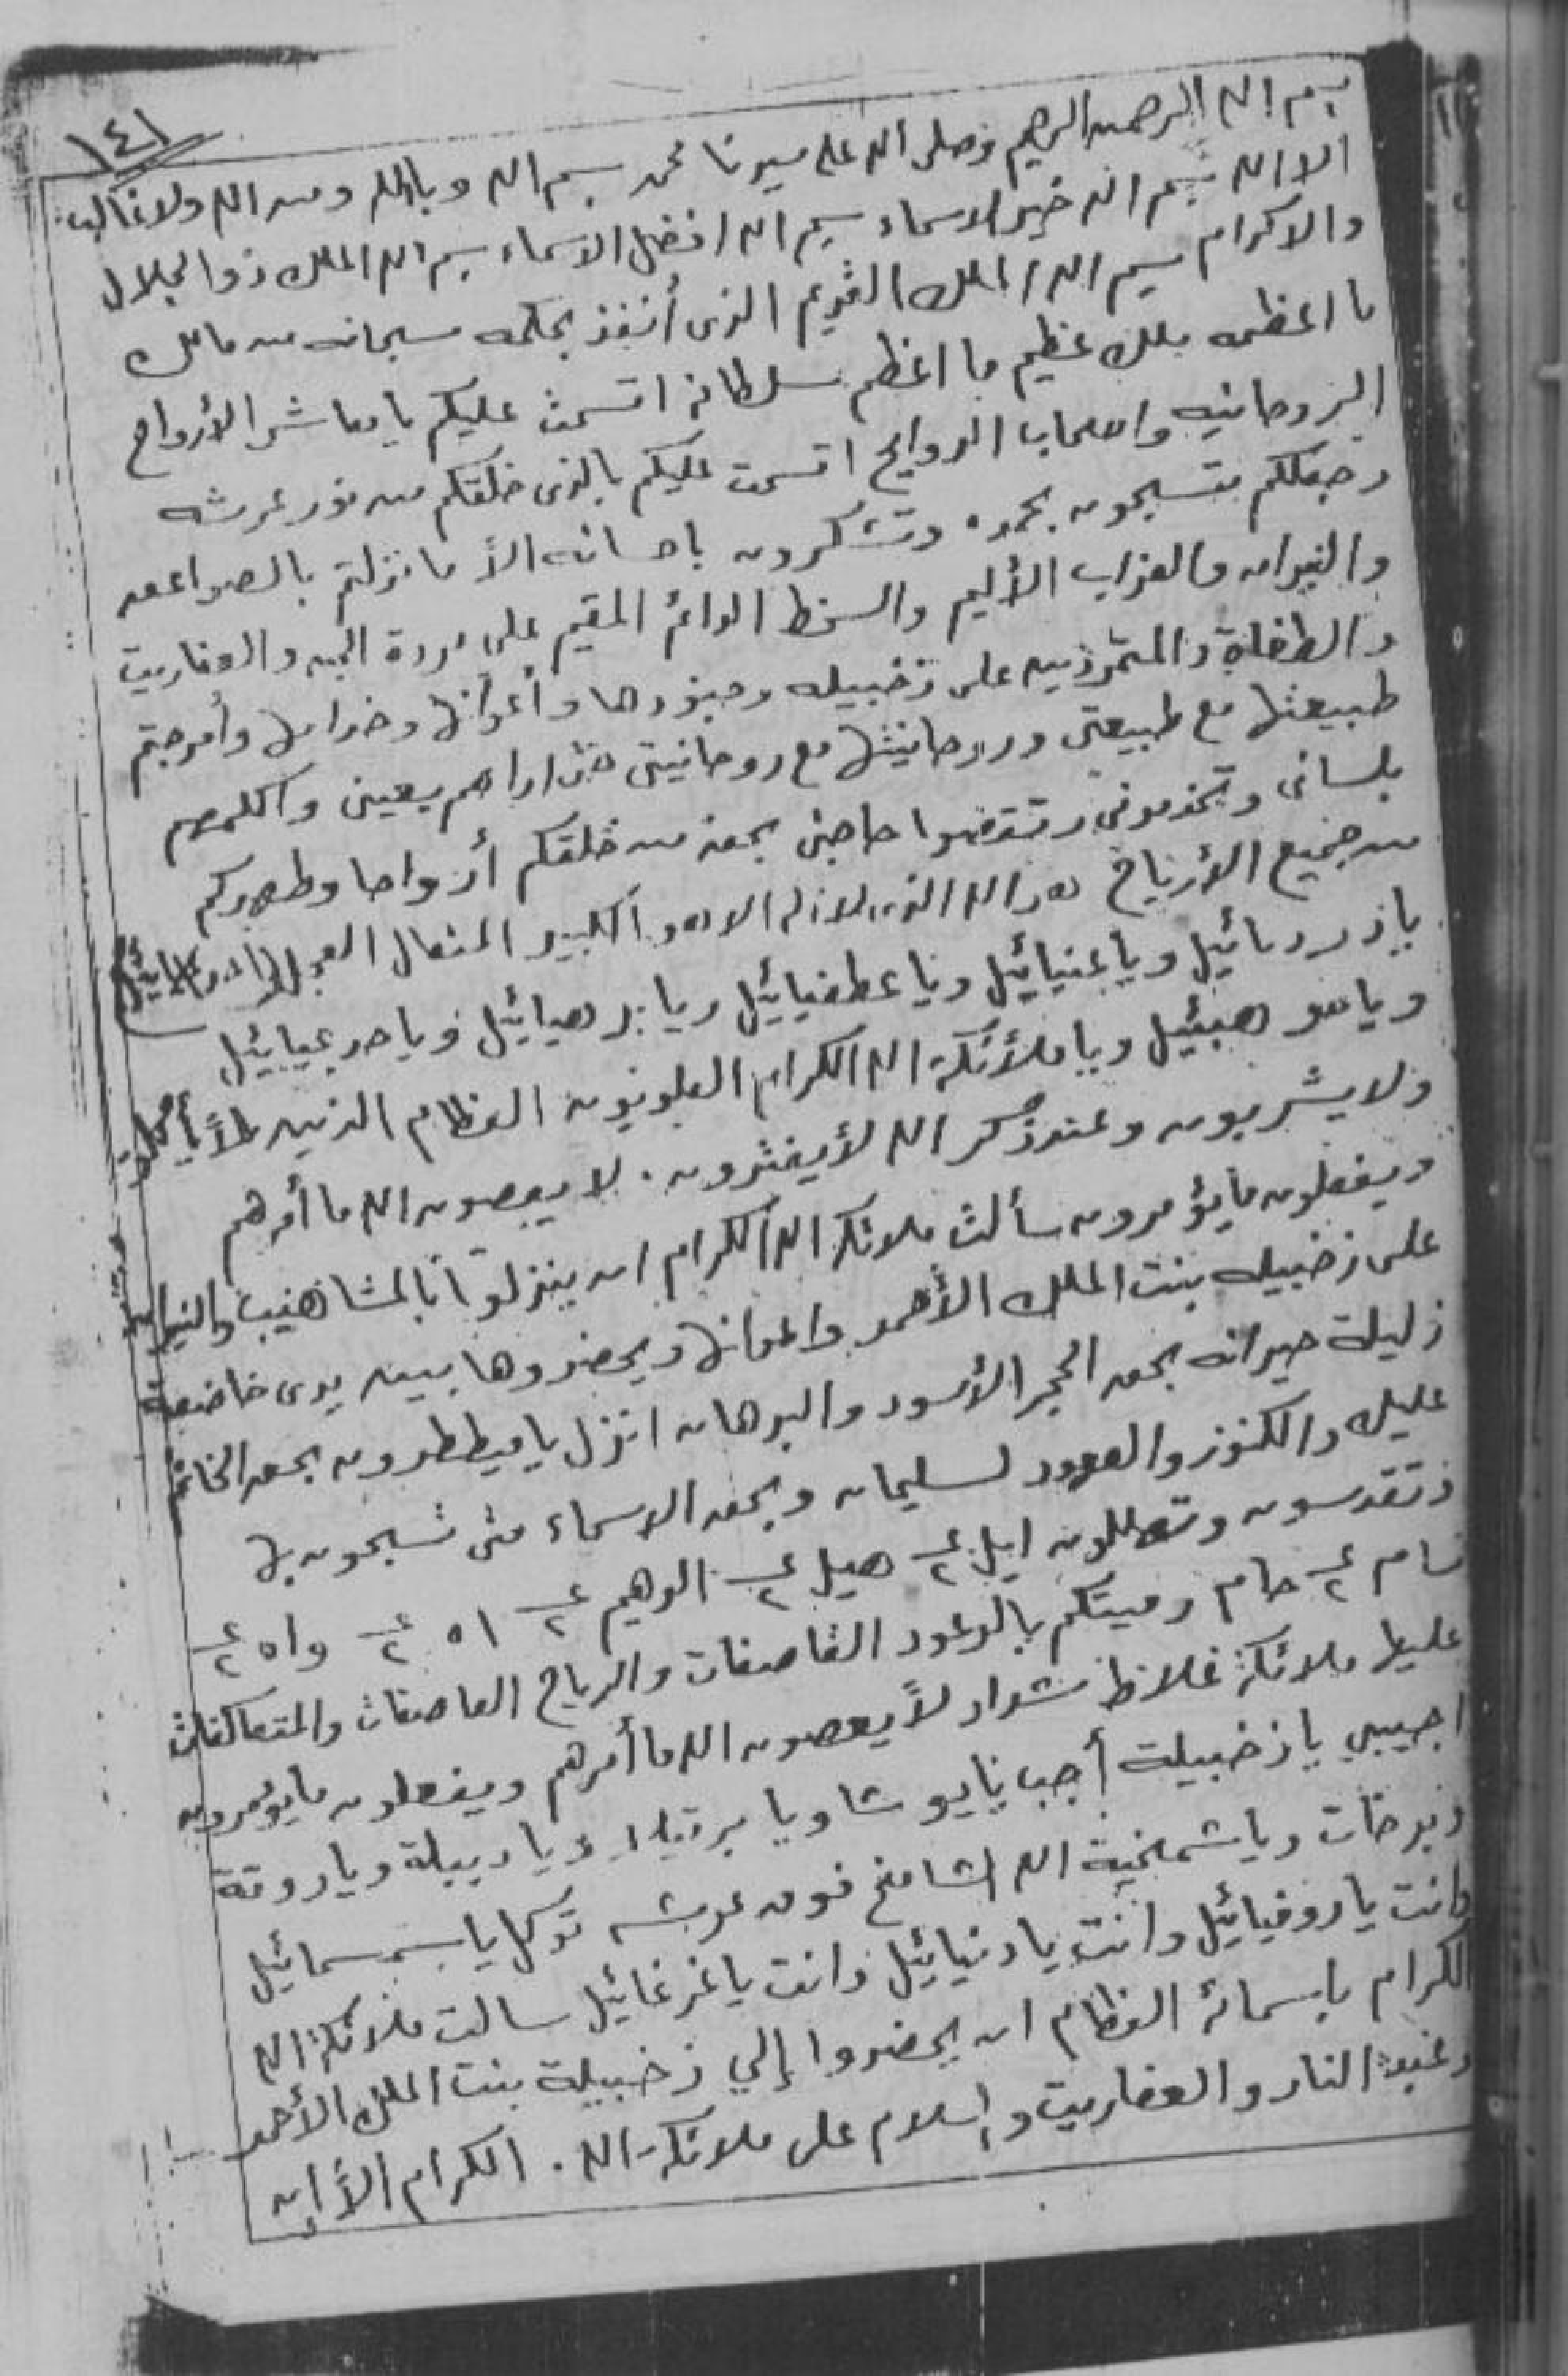 ١٤١
بسم الله الرحمن الرحيم وصلى الله على سيدنا محمد بسم الله وبالله ومن الله ولا غالب
الا الله بسم الله خير الاسماء بسم الله افضل الاسماء بسم الله الملك ذو الجلال
والاكرام بسم الله الملك القديم الذى أنفذ بحكمه سبحانه من مالك
ما اعظمه ملك عظيم ما اعظم سلطانه اقسمت عليكم يا معاشر الأرواح
الروحانيه واصحاب الروايح اقسمت عليكم بالذى خلقكم من نور عرشه
وجعلكم تسبحون بحمده وتشكرون باحسانه الأ ما نزلتم بالصواعق
والنيران والعذاب الأليم والسخط الدائم المقيم على مردة الجن والعفاريت
والطغاة والمتمردين على زخبيله وجنودها وأعوانها وخدامها وأمزجتم
طبيعتها مع طبيعتى وروحانيتها مع روحانيتى حتى اراهم بعينى واكلمهم
بلسانى وتخدمونى وتقضوا حاجتى بحق من خلقكم أرواحا وطهركم
من جميع الأرياح هو الله الذى لا اله الا هو الكبير المتعال
يا ذرديائيل ويا عنيائيل ويا عطفيائيل ويا بر هيائيل ويا صرعيائيل
ويا هبئيل ويا ملأئكة الله الكرام العلويون العظام الذين لأ يأكلون
ولا يشربون وعند ذكر الله لأ يفترون . لا يعصون الله ما أمرهم
ويفعلون ما يؤمرون سألت ملائكة الله الكرام ان ينزلوا بالمشاهيب والنيران
على زخبيله بنت الملك الأحمر واعوانها ويحضروها بين يدى خاضعة
ذليلة حيرانه بحق الحجر الأسود والبرهان انزل يا ميططرون بحق الخاتم
عليك والكنوز والعهود لسليمان وبحق الاسماء متى تسبحون بها
وتقدسون وتهللون ايل ع٢ هيل ع٢ الوهيم ع٢ اه ع٢ واه ع٢
سام ع٢ حام رميتكم بالرعود القاصفات والرياح العاصفات والمتعاكفات
عليها ملائكة غلاظ شداد لأ يعصون الله ما أمرهم ويفعلون ما يؤمرون
اجيبي يا زخبيلة أجب يا يوشا ويا برتيلا ويا دبيلة ويا روقة
وبرخات ويا شمخية الله الشامخ فوق عرشه توكل يا سمسمائيل
وانت يا روفيائيل وانت يا دنيائيل وانت يا غرغائيل سالت ملائكة الله
الكرام باسمائه العظام ان يحضروا إلي زخبيلة بنت الملك الأحمر
وعبدة النار والعفاريت والسلام على ملائكة الله . الكرام الأ إن